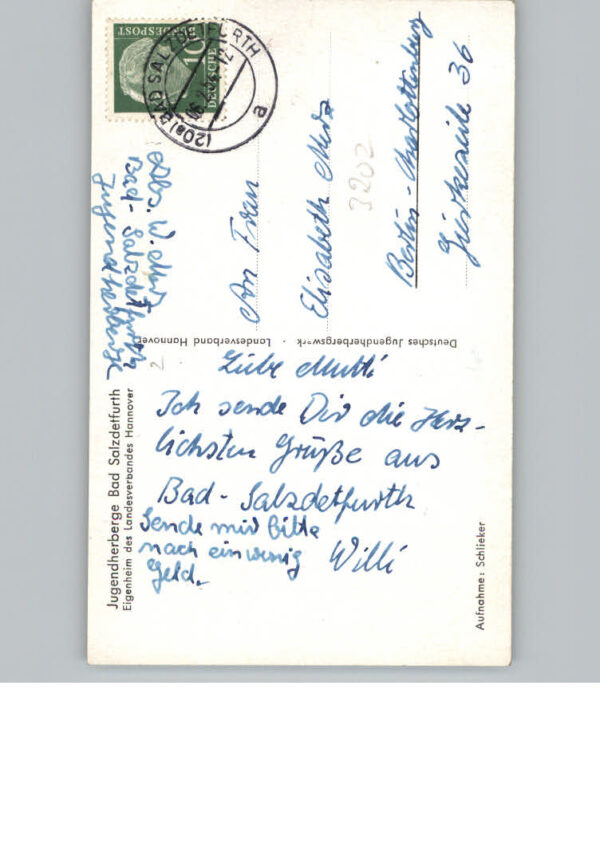 Jugendherberge Bad Salzdetfurth
Eigenheim des Landesverbandes Hannover
Liebe Mutti
Ich sende Dir die Herz-
lichsten Grüße aus
Bad-Salzdetfurth
Willi
Sende mir bitte
noch ein wenig
Geld.
Aufnahme: Schlieker
Deutsches Jugendherbergswerk · Landesverband Hannover
Abs. W.
Bad-Salzdetfurth
Jugendherberge
DEUTSCHE
BUNDESPOST
10
(20a) BAD SALZDETFURTH
a
An Frau
Elisabeth
3202
Berlin-Charlottenburg
36
2